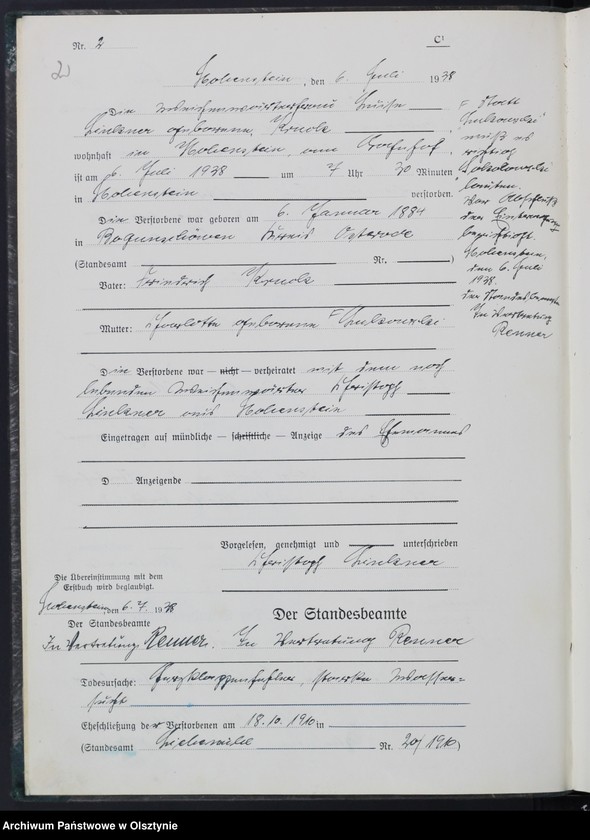 Nr. 2
C¹
2
Hohenstein, den 6. Juli 1938
Die Weichenwärterfrau Luise
geborene Kruck
wohnhaft in Hohenstein, am Bahnhof
ist am 6. Juli 1938 um 7 Uhr 30 Minuten
in Hohenstein verstorben.
Die Verstorbene war geboren am 6. Januar 1884
in Kreis Osterode
(Standesamt Nr. )
Vater: Friedrich Kruck
Mutter: Charlotte geborene
Die Verstorbene war — nicht — verheiratet mit dem noch
lebenden Weichenwärter Christoph
aus Hohenstein
Eingetragen auf mündliche — schriftliche — Anzeige des Ehemannes
D Anzeigende
Vorgelesen, genehmigt und unterschrieben
Christoph
Die Übereinstimmung mit dem
Erstbuch wird beglaubigt.
Hohenstein, den 6.7. 1938
Der Standesbeamte
In Vertretung: Renner.
Der Standesbeamte
In Vertretung Renner
Todesursache: Herzklappenfehler, starke Wasser=
sucht
Eheschließung der Verstorbenen am 18.10.1910 in
(Standesamt Liebemühl Nr. 20/1910)
F Statt
muß es
richtig
Sokolowski
lauten.
Vor Abschluß
der Eintragung
berichtigt.
Hohenstein,
den 6. Juli
1938.
Der Standesbeamte
In Vertretung
Renner
Archiwum Państwowe w Olsztynie